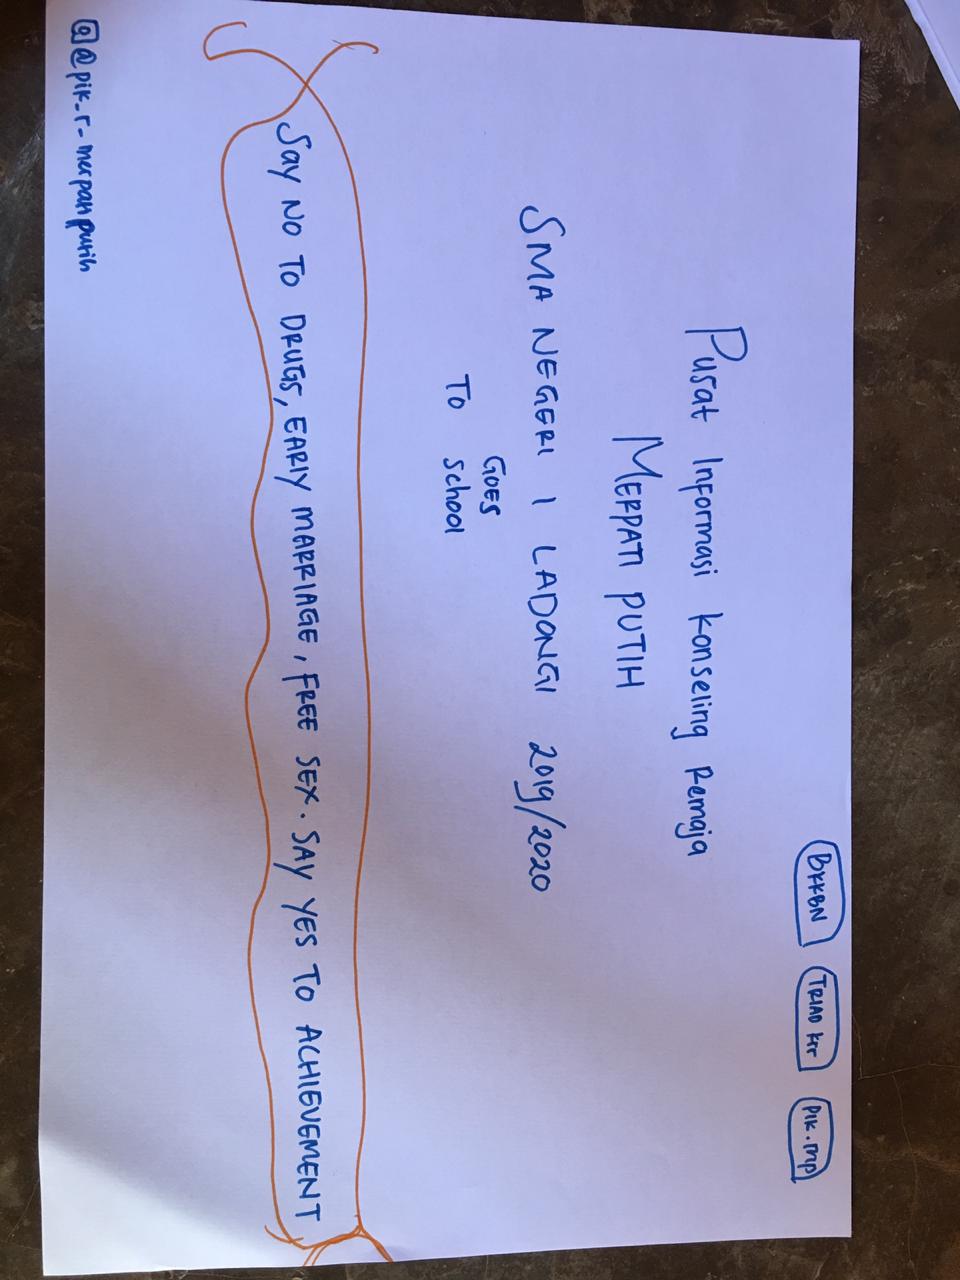 BKKBN
TRIAD KRR
PIK.mp
Pusat Informasi Konseling Remaja
MERPATI PUTIH
SMA NEGERI 1 LADONGI 2019/2020
GOES
TO School
SAY NO TO DRUGS, EARLY MARRIAGE, FREE SEX. SAY YES TO ACHIEVEMENT
@pik_r_merpatiputih